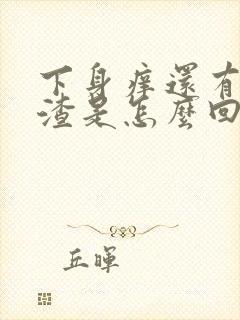 下身痒還有
渣是怎麼回
丘暉